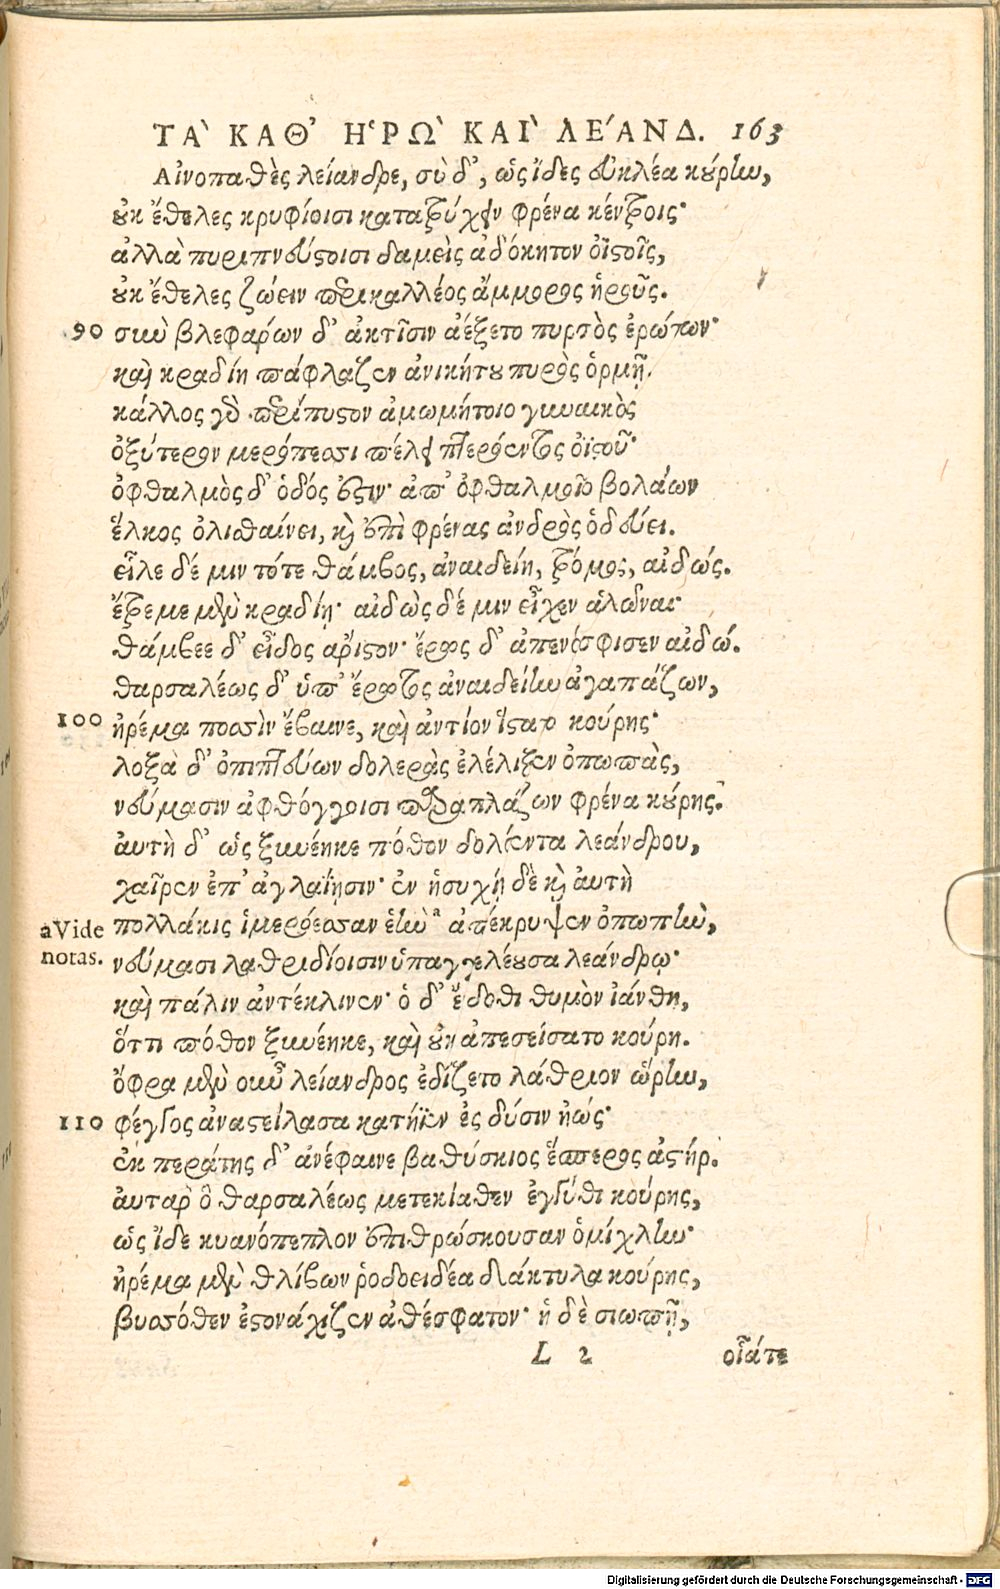 ΤᾺ ΚΑΘ’ Η῾ΡῺ ΚΑῚ ΛΕ΄ΑΝΔ. 163
Αἰνοπαθὲς λείανδρε, σὺ δ’, ὡς ἴδες εὐκλέα κούρην,
οὐκ ἔθελες κρυφίοισι κατατρύχειν φρένα κέντροις·
ἀλλὰ πυριπνεύστοισι δαμεὶς ἀδόκητον ὀϊστοῖς,
οὐκ ἔθελες ζώειν περικαλλέος ἄμμορος ἡροῦς.
90 σὺν βλεφάρων δ’ ἀκτῖσιν ἀέξετο πυρσὸς ἐρώτων·
καὶ κραδίη πάφλαζεν ἀνικήτου πυρὸς ὁρμῇ.
κάλλος γὰρ περίπυστον ἀμωμήτοιο γυναικὸς
ὀξύτερον μερόπεσσι πέλει πτερόεντος ὀϊστοῦ·
ὀφθαλμὸς δ’ ὁδός ἐστιν· ἀπ’ ὀφθαλμοῖο βολάων
ἕλκος ὀλισθαίνει, καὶ ἐπὶ φρένας ἀνδρὸς ὁδεύει.
εἷλε δέ μιν τότε θάμβος, ἀναιδείη, τρόμος, αἰδώς.
ἔτρεμε μὲν κραδίη· αἰδὼς δέ μιν εἶχεν ἁλῶναι·
θάμβεε δ’ εἶδος ἄριστον· ἔρως δ’ ἀπενόσφισεν αἰδώ.
θαρσαλέως δ’ ὑπ’ ἔρωτος ἀναιδείην ἀγαπάζων,
100 ἠρέμα ποσσὶν ἔβαινε, καὶ ἀντίον ἵστατο κούρης·
λοξὰ δ’ ὀπιπτεύων δολερὰς ἐλέλιξεν ὀπωπὰς,
νεύμασιν ἀφθόγγοισι παραπλάζων φρένα κούρης.
ἀυτὴ δ’ ὡς ξυνέηκε πόθον δολόεντα λεάνδρου,
χαῖρεν ἐπ’ ἀγλαΐῃσιν· ἐν ἡσυχίῃ δὲ καὶ ἀυτὴ
a Vide πολλάκις ἱμερόεσσαν ἑὴν a ἀπέκρυψεν ὀπωπὴν,
notas. νεύμασι λαθριδίοισιν ὑπαγγελέουσα λεάνδρῳ·
καὶ πάλιν ἀντέκλινεν· ὁ δ’ ἔδοθι θυμὸν ἰάνθη,
ὅττι πόθον ξυνέηκε, καὶ οὐκ ἀπεσείσατο κούρη.
ὄφρα μὲν οὖν λείανδρος ἐδίζετο λάθριον ὥρην,
110 φέγγος ἀναστείλασα κατήϊεν ἐς δύσιν ἠώς·
ἐκ περάτης δ’ ἀνέφαινε βαθύσκιος ἕσπερος ἀστήρ.
ἀυταρ ὃ θαρσαλέως μετεκίαθεν ἐγγύθι κούρης,
ὡς ἴδε κυανόπεπλον ἐπιθρώσκουσαν ὁμίχλην·
ἠρέμα μὲν θλίβων ῥοδοειδέα δάκτυλα κούρης,
βυσσόθεν ἐστονάχιζεν ἀθέσφατον· ἡ δὲ σιωπῇ,
L 2 οἷάτε
Digitalisierung gefördert durch die Deutsche Forschungsgemeinschaft - DFG